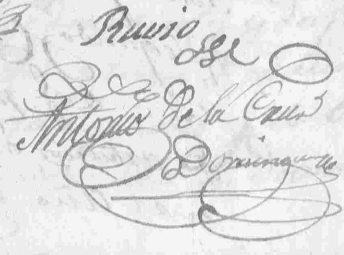 Ruvio
Antonio De la Cruz
Domingues